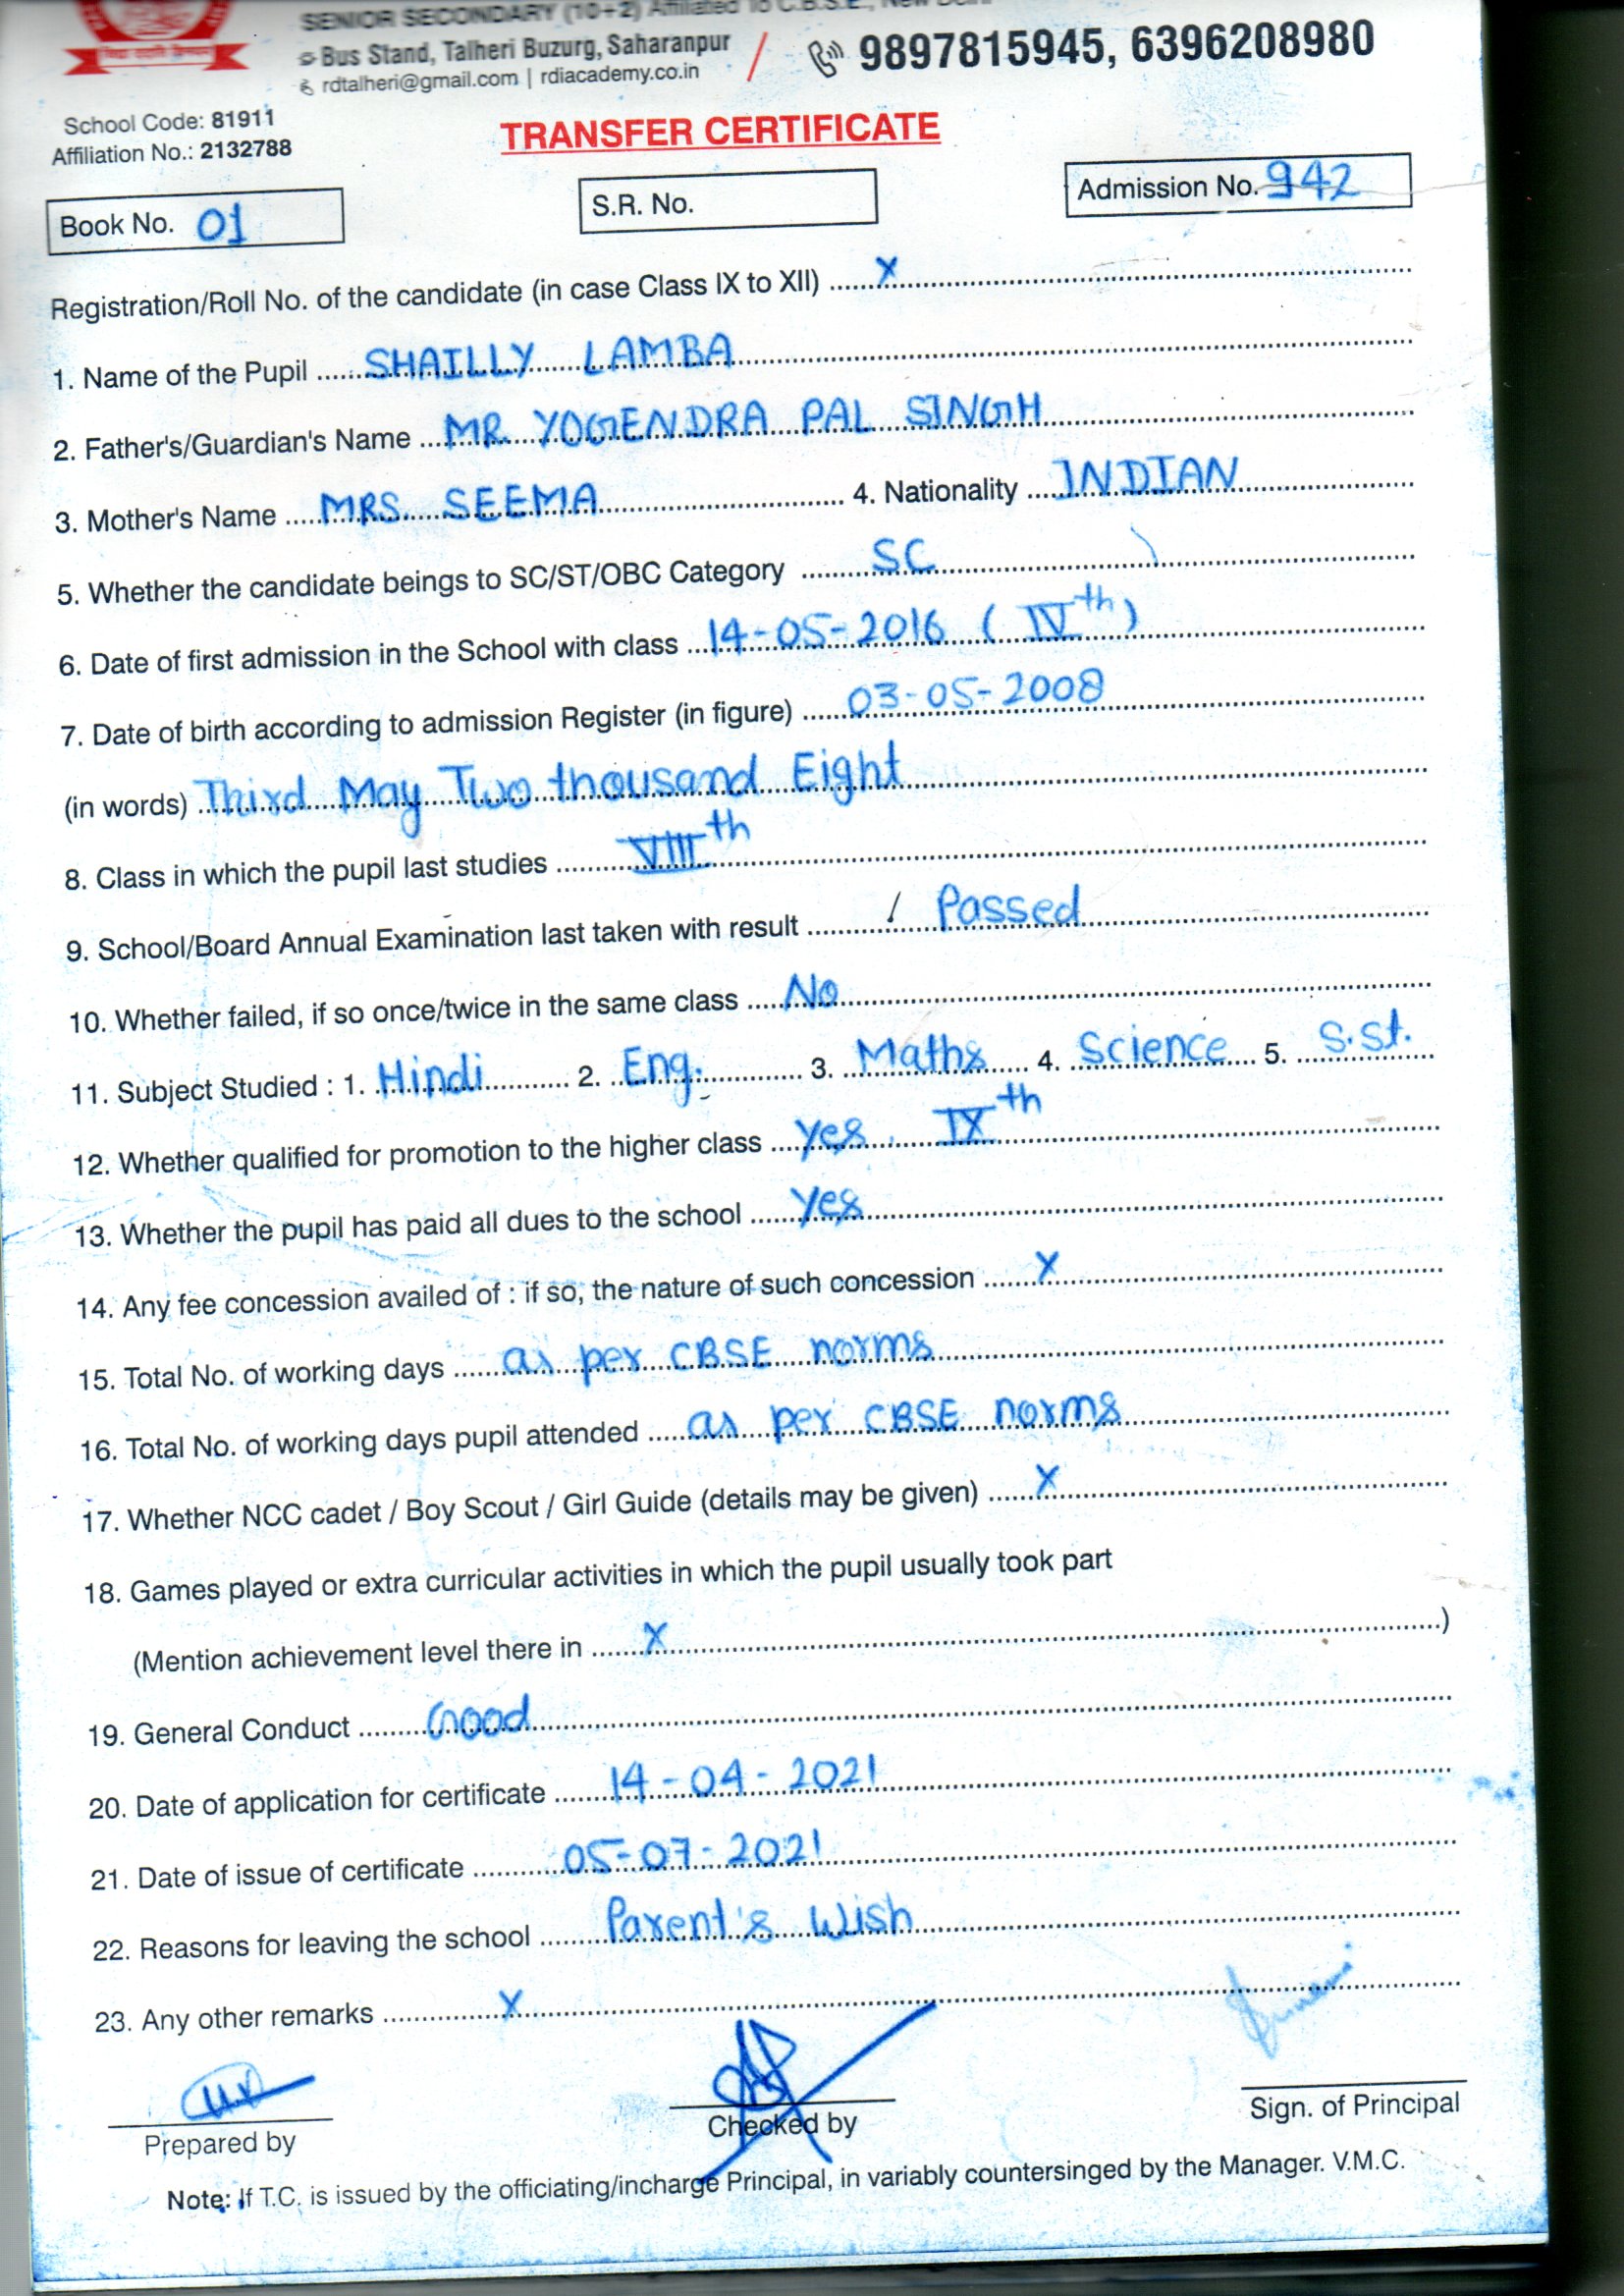 SENIOR SECONDARY (10+2) Affiliated To C.B.S.E., New Delhi
Bus Stand, Talheri Buzurg, Saharanpur / 9897815945, 6396208980
rdtalheri@gmail.com | rdiacademy.co.in
School Code: 81911
Affiliation No.: 2132788
TRANSFER CERTIFICATE
Book No. 01 S.R. No. Admission No. 942
Registration/Roll No. of the candidate (in case Class IX to XII) X
1. Name of the Pupil SHAILLY LAMBA
2. Father's/Guardian's Name MR. YOGENDRA PAL SINGH
3. Mother's Name MRS. SEEMA 4. Nationality INDIAN
5. Whether the candidate beings to SC/ST/OBC Category SC
6. Date of first admission in the School with class 14-05-2016 ( IVth )
7. Date of birth according to admission Register (in figure) 03-05-2008
(in words) Third May Two thousand Eight
8. Class in which the pupil last studies VIIIth
9. School/Board Annual Examination last taken with result / Passed
10. Whether failed, if so once/twice in the same class No
11. Subject Studied : 1. Hindi 2. Eng. 3. Maths 4. Science 5. S.St.
12. Whether qualified for promotion to the higher class Yes, IXth
13. Whether the pupil has paid all dues to the school Yes
14. Any fee concession availed of : if so, the nature of such concession X
15. Total No. of working days as per CBSE norms
16. Total No. of working days pupil attended as per CBSE norms
17. Whether NCC cadet / Boy Scout / Girl Guide (details may be given) X
18. Games played or extra curricular activities in which the pupil usually took part
(Mention achievement level there in X )
19. General Conduct Good
20. Date of application for certificate 14-04-2021
21. Date of issue of certificate 05-07-2021
22. Reasons for leaving the school Parent's Wish
23. Any other remarks X
Prepared by Checked by Sign. of Principal
Note: If T.C. is issued by the officiating/incharge Principal, in variably countersinged by the Manager. V.M.C.